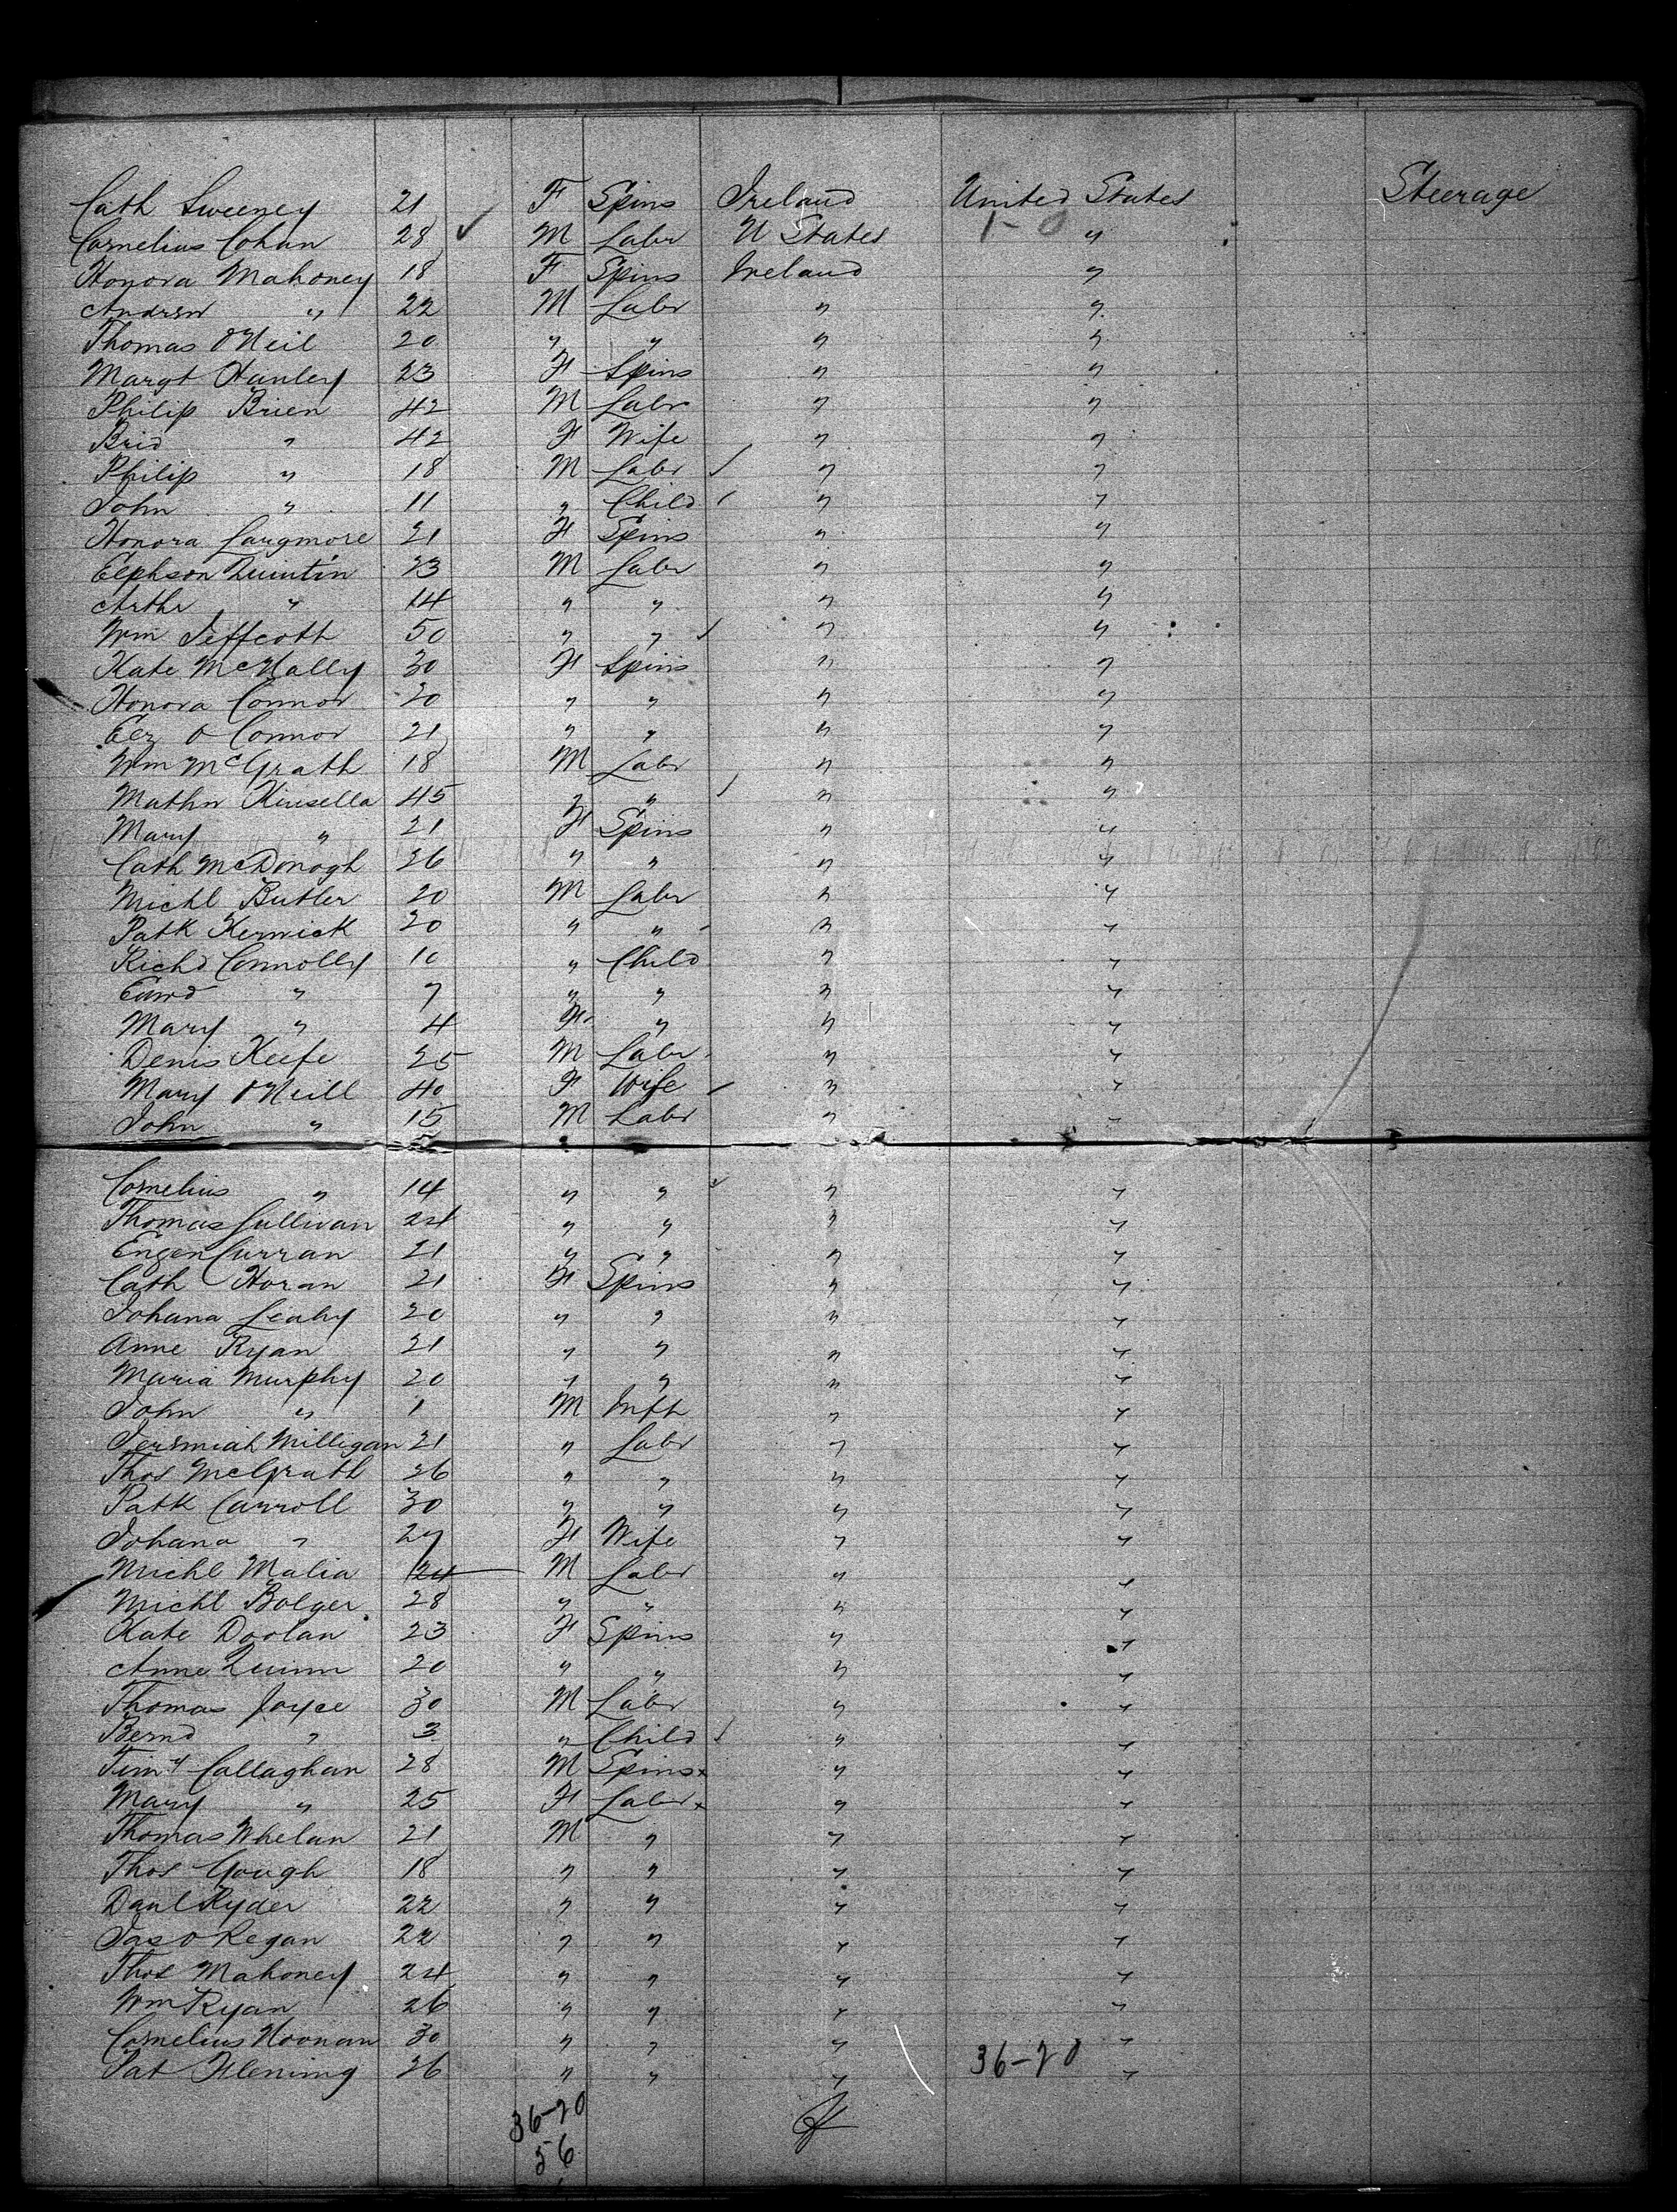 Cath Sweeney 21 F Spins Ireland United States Steerage
Cornelius Cohan 28 ✓ M Labr U States 1-0 "
Honora Mahoney 18 F Spins Ireland "
Andrew " 22 M Labr " "
Thomas O'Neil 20 " " " "
Margt Hanley 23 F Spins " "
Philip Brien 42 M Labr " "
Brid " 42 F Wife " "
Philip " 18 M Labr ✓ " "
John " 11 " Child ✓ " "
Honora Langmore 21 F Spins " "
Elphson Quintin 23 M Labr " "
Arthr " 14 " " " "
Wm Jeffcoth 50 " " ✓ " "
Kate McNally 30 F Spins " "
Honora Connor 20 " " " "
Eliz O Connor 21 " " " "
Wm McGrath 18 M Labr " "
Mathw Kinsella 45 " " ✓ " "
Mary " 21 F Spins " "
Cath McDonogh 26 " " " "
Michl Butler 20 M Labr " "
Patk Kerwick 20 " " " "
Richd Connolly 10 " Child " "
Edwd " 7 " " " "
Mary " 4 F " " "
Denis Keefe 25 M Labr " "
Mary O'Neill 40 F Wife ✓ " "
John " 15 M Labr " "
Cornelius " 14 " " ✓ " "
Thomas Sullivan 24 " " " "
Eugen Curran 21 " " " "
Cath Horan 21 F Spins " "
Johana Leahy 20 " " " "
Anne Ryan 21 " " " "
Maria Murphy 20 " " " "
John " 1 M Inft " "
Jeremiah Milligan 21 " Labr " "
Thos McGrath 26 " " " "
Patk Carroll 30 " " " "
Johana " 27 F Wife " "
Michl Malia 24 M Labr " "
Michl Bolger 28 " " " "
Kate Doolan 23 F Spins " "
Anne Quinn 20 " " " "
Thomas Joyce 30 M Labr " "
Bernd " 3 " Child ✓ " "
Timy Callaghan 28 M Spins x " "
Mary " 25 F Labr x " "
Thomas Whelan 21 M " " "
Thos Gough 18 " " " "
Danl Ryder 22 " " " "
Jas O Regan 22 " " " "
Thos Mahoney 24 " " " "
Wm Ryan 26 " " " "
Cornelius Noonan 30 " " " "
Pat Fleming 26 " " " 36-20 "
36-20
56